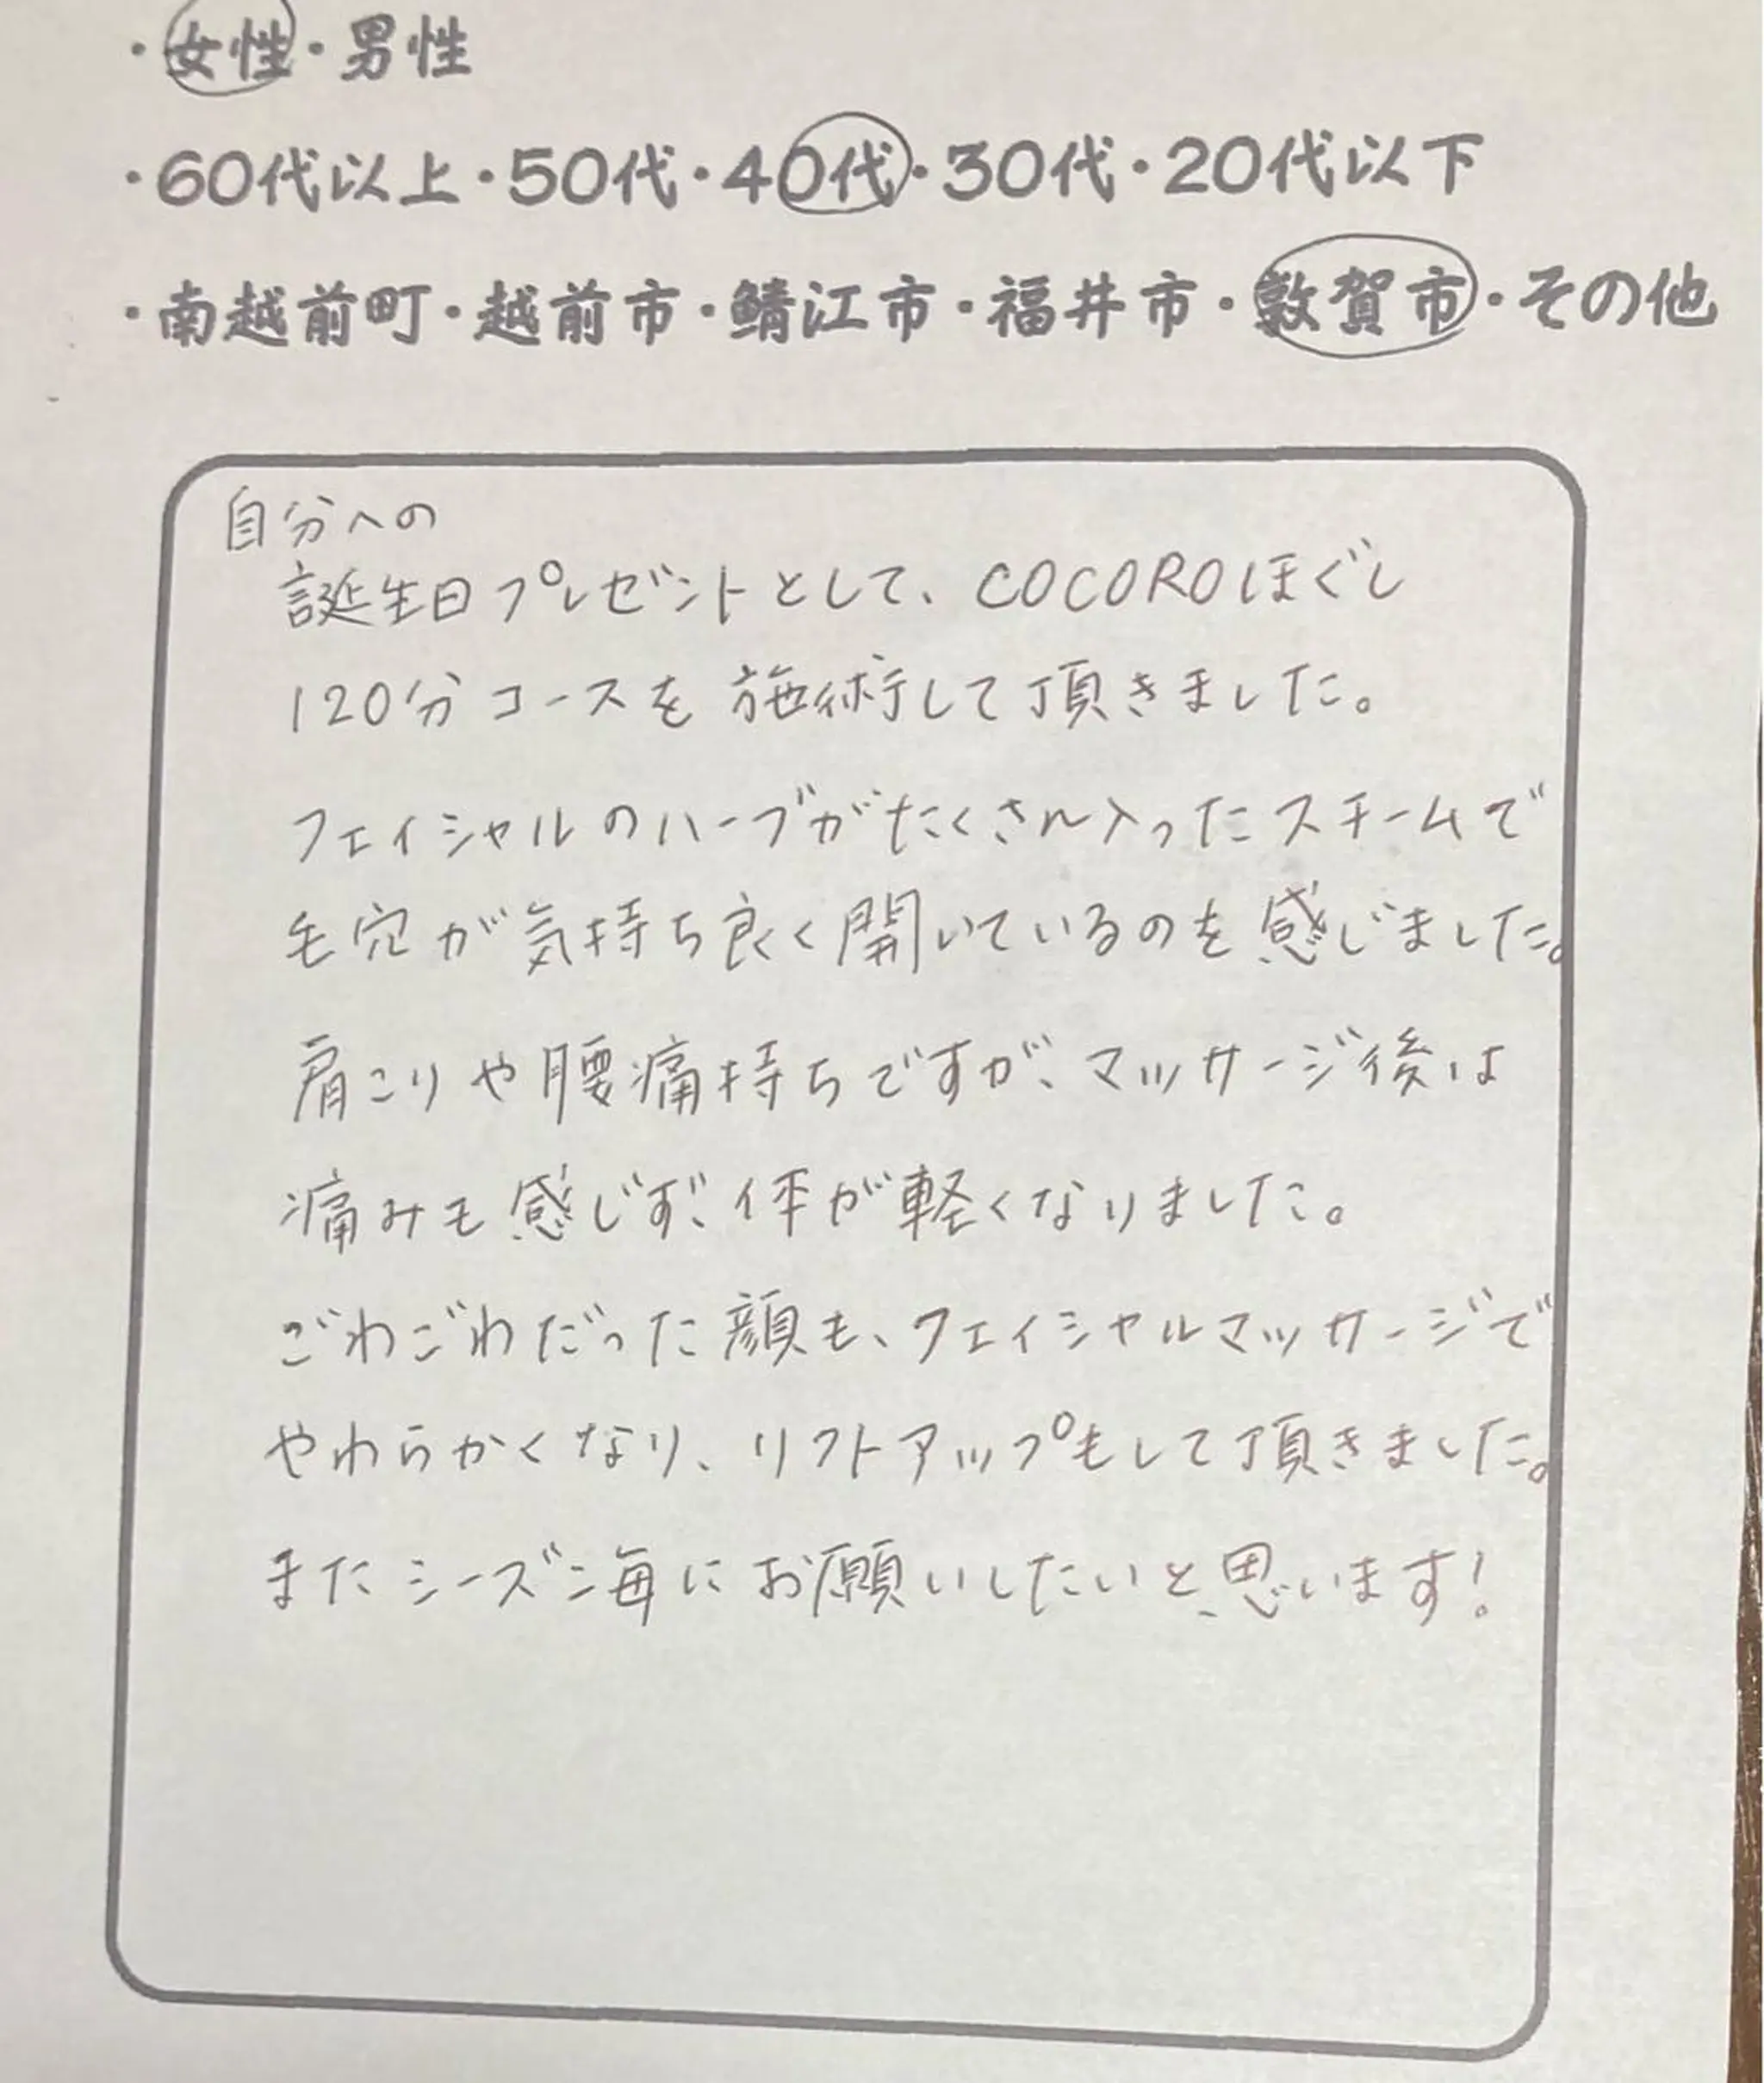 ・女性・男性
・60代以上・50代・40代・30代・20代以下
・南越前町・越前市・鯖江市・福井市・敦賀市・その他
自分への
誕生日プレゼントとして、COCOROほぐし
120分コースを施術して頂きました。
フェイシャルのハーブがたくさん入ったスチームで
毛穴が気持ち良く開いているのを感じました。
肩こりや腰痛持ちですが、マッサージ後は
痛みも感じず、体が軽くなりました。
ごわごわだった顔も、フェイシャルマッサージで
やわらかくなり、リフトアップもして頂きました。
またシーズン毎にお願いしたいと思います!